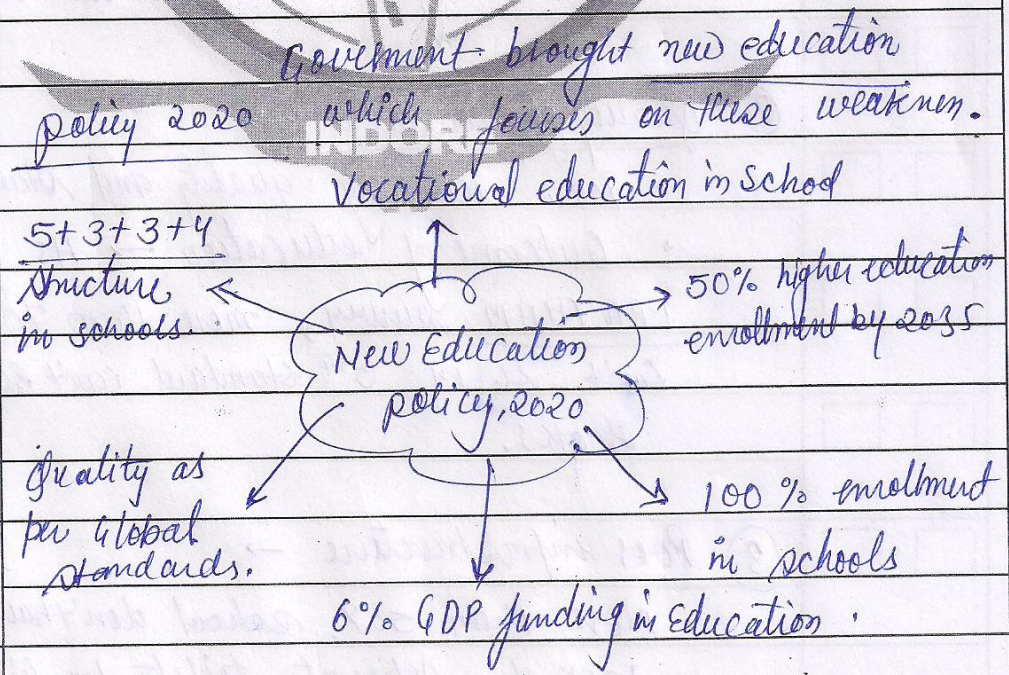 Goverment brought new education
policy 2020 which focuses on these weaknen.
INDORE
Vocational education in School
5+3+3+4
Structure
in schools
50% higher education
enrollment by 2035
New Education
policy, 2020
Quality as
per Global
standards.
100% enrollment
in schools
6% GDP funding in Education.